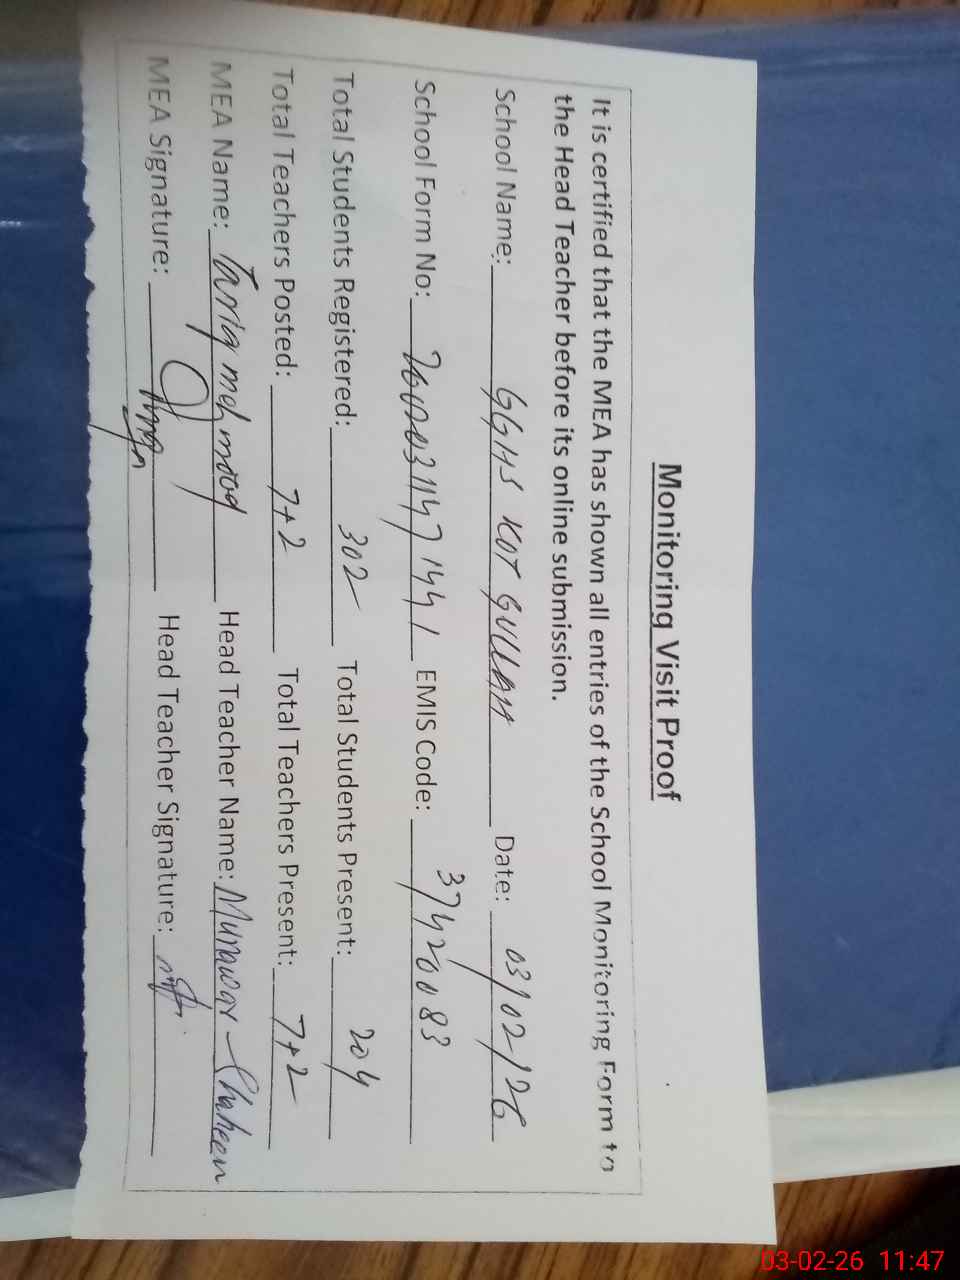 Monitoring Visit Proof
It is certified that the MEA has shown all entries of the School Monitoring Form to
the Head Teacher before its online submission.
School Name: GGHS KOT GULLAH Date: 03/02/26
School Form No: EMIS Code: 37420083
Total Students Registered: 302 Total Students Present: 204
Total Teachers Posted: 7+2 Total Teachers Present: 7+2
MEA Name: Tariq mehmood Head Teacher Name: Munawar Shaheen
MEA Signature: Head Teacher Signature:
03-02-26 11:47